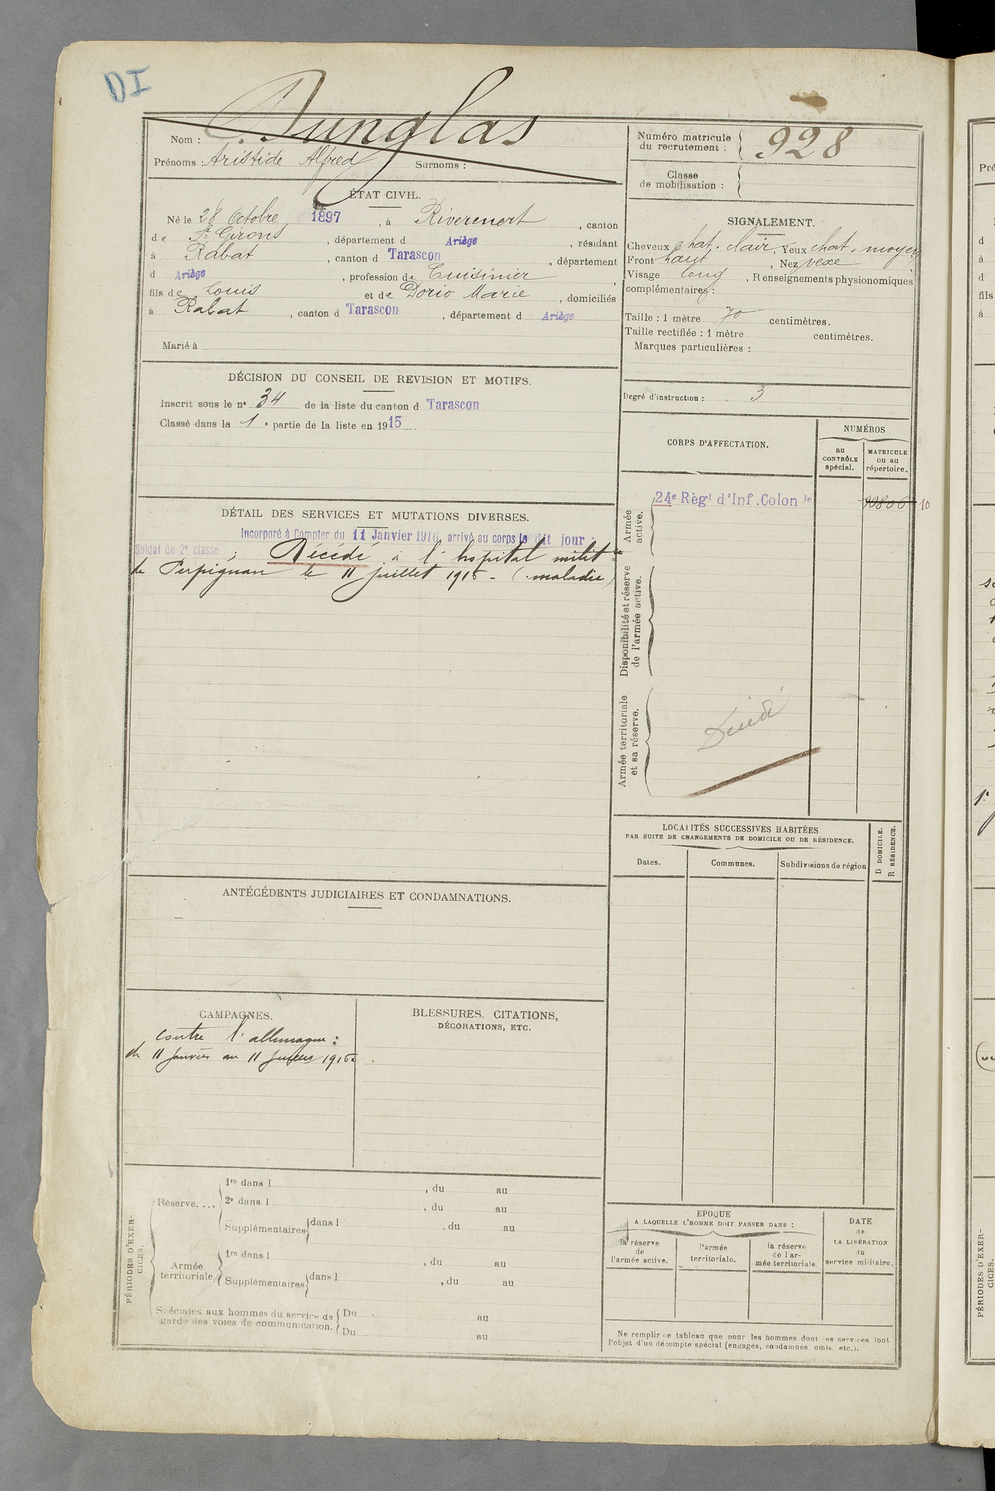 DI
Nom : Dunglas
Prénoms : Aristide Alfred Surnoms :
Numéro matricule du recrutement : 928
Classe de mobilisation :
ÉTAT CIVIL.
Né le 28 Octobre 1897, à Riverenert, canton
de St Girons, département d Ariège, résidant
à Rabat, canton d Tarascon, département
d Ariège, profession de Cuisinier
fils de Louis et de Dorio Marie, domiciliés
à Rabat, canton d Tarascon, département d Ariège
Marié à
SIGNALEMENT.
Cheveux chat. clair, Yeux chat. moyen
Front haut, Nez vexe
Visage long, Renseignements physionomiques
complémentaires :
Taille : 1 mètre 70 centimètres.
Taille rectifiée : 1 mètre centimètres.
Marques particulières :
Degré d'instruction : 3
DÉCISION DU CONSEIL DE REVISION ET MOTIFS.
Inscrit sous le n° 34 de la liste du canton d Tarascon
Classé dans la 1e partie de la liste en 1915
CORPS D'AFFECTATION.
NUMÉROS
au CONTRÔLE spécial.
MATRICULE ou au répertoire.
24e Règt d'Inf. Colon le
10
Armée active.
Disponibilité et réserve de l'armée active.
Armée territoriale et sa réserve.
Décédé
DÉTAIL DES SERVICES ET MUTATIONS DIVERSES.
Incorporé à Compter du 11 Janvier 1916, arrivé au corps le dit jour
Soldat de 2e classe ; Décédé à l'hopital milit re
de Perpignan le 11 juillet 1916 - (maladie)
LOCALITÉS SUCCESSIVES HABITÉES
PAR SUITE DE CHANGEMENTS DE DOMICILE OU DE RÉSIDENCE.
Dates. Communes. Subdivisions de région
D DOMICILE.
R RÉSIDENCE.
ANTÉCÉDENTS JUDICIAIRES ET CONDAMNATIONS.
CAMPAGNES.
contre l'allemagne :
du 11 janvier au 11 juillet 1916.
BLESSURES, CITATIONS,
DÉCORATIONS, ETC.
PÉRIODES D'EXERCICES.
Réserve....
1re dans l , du au
2e dans l , du au
Supplémentaires dans l , du au
Armée territoriale
1re dans l , du au
Supplémentaires dans l , du au
Spéciales aux hommes du service de
garde des voies de communication.
Du au
Du au
EPOQUE
A LAQUELLE L'HOMME DOIT PASSER DANS :
la réserve de l'armée active.
l'armée territoriale.
la réserve de l'armée territoriale
DATE de LA LIBÉRATION du service militaire.
Ne remplir ce tableau que pour les hommes dont les services font
l'objet d'un décompte spécial (engagés, condamnés, omis, etc.).